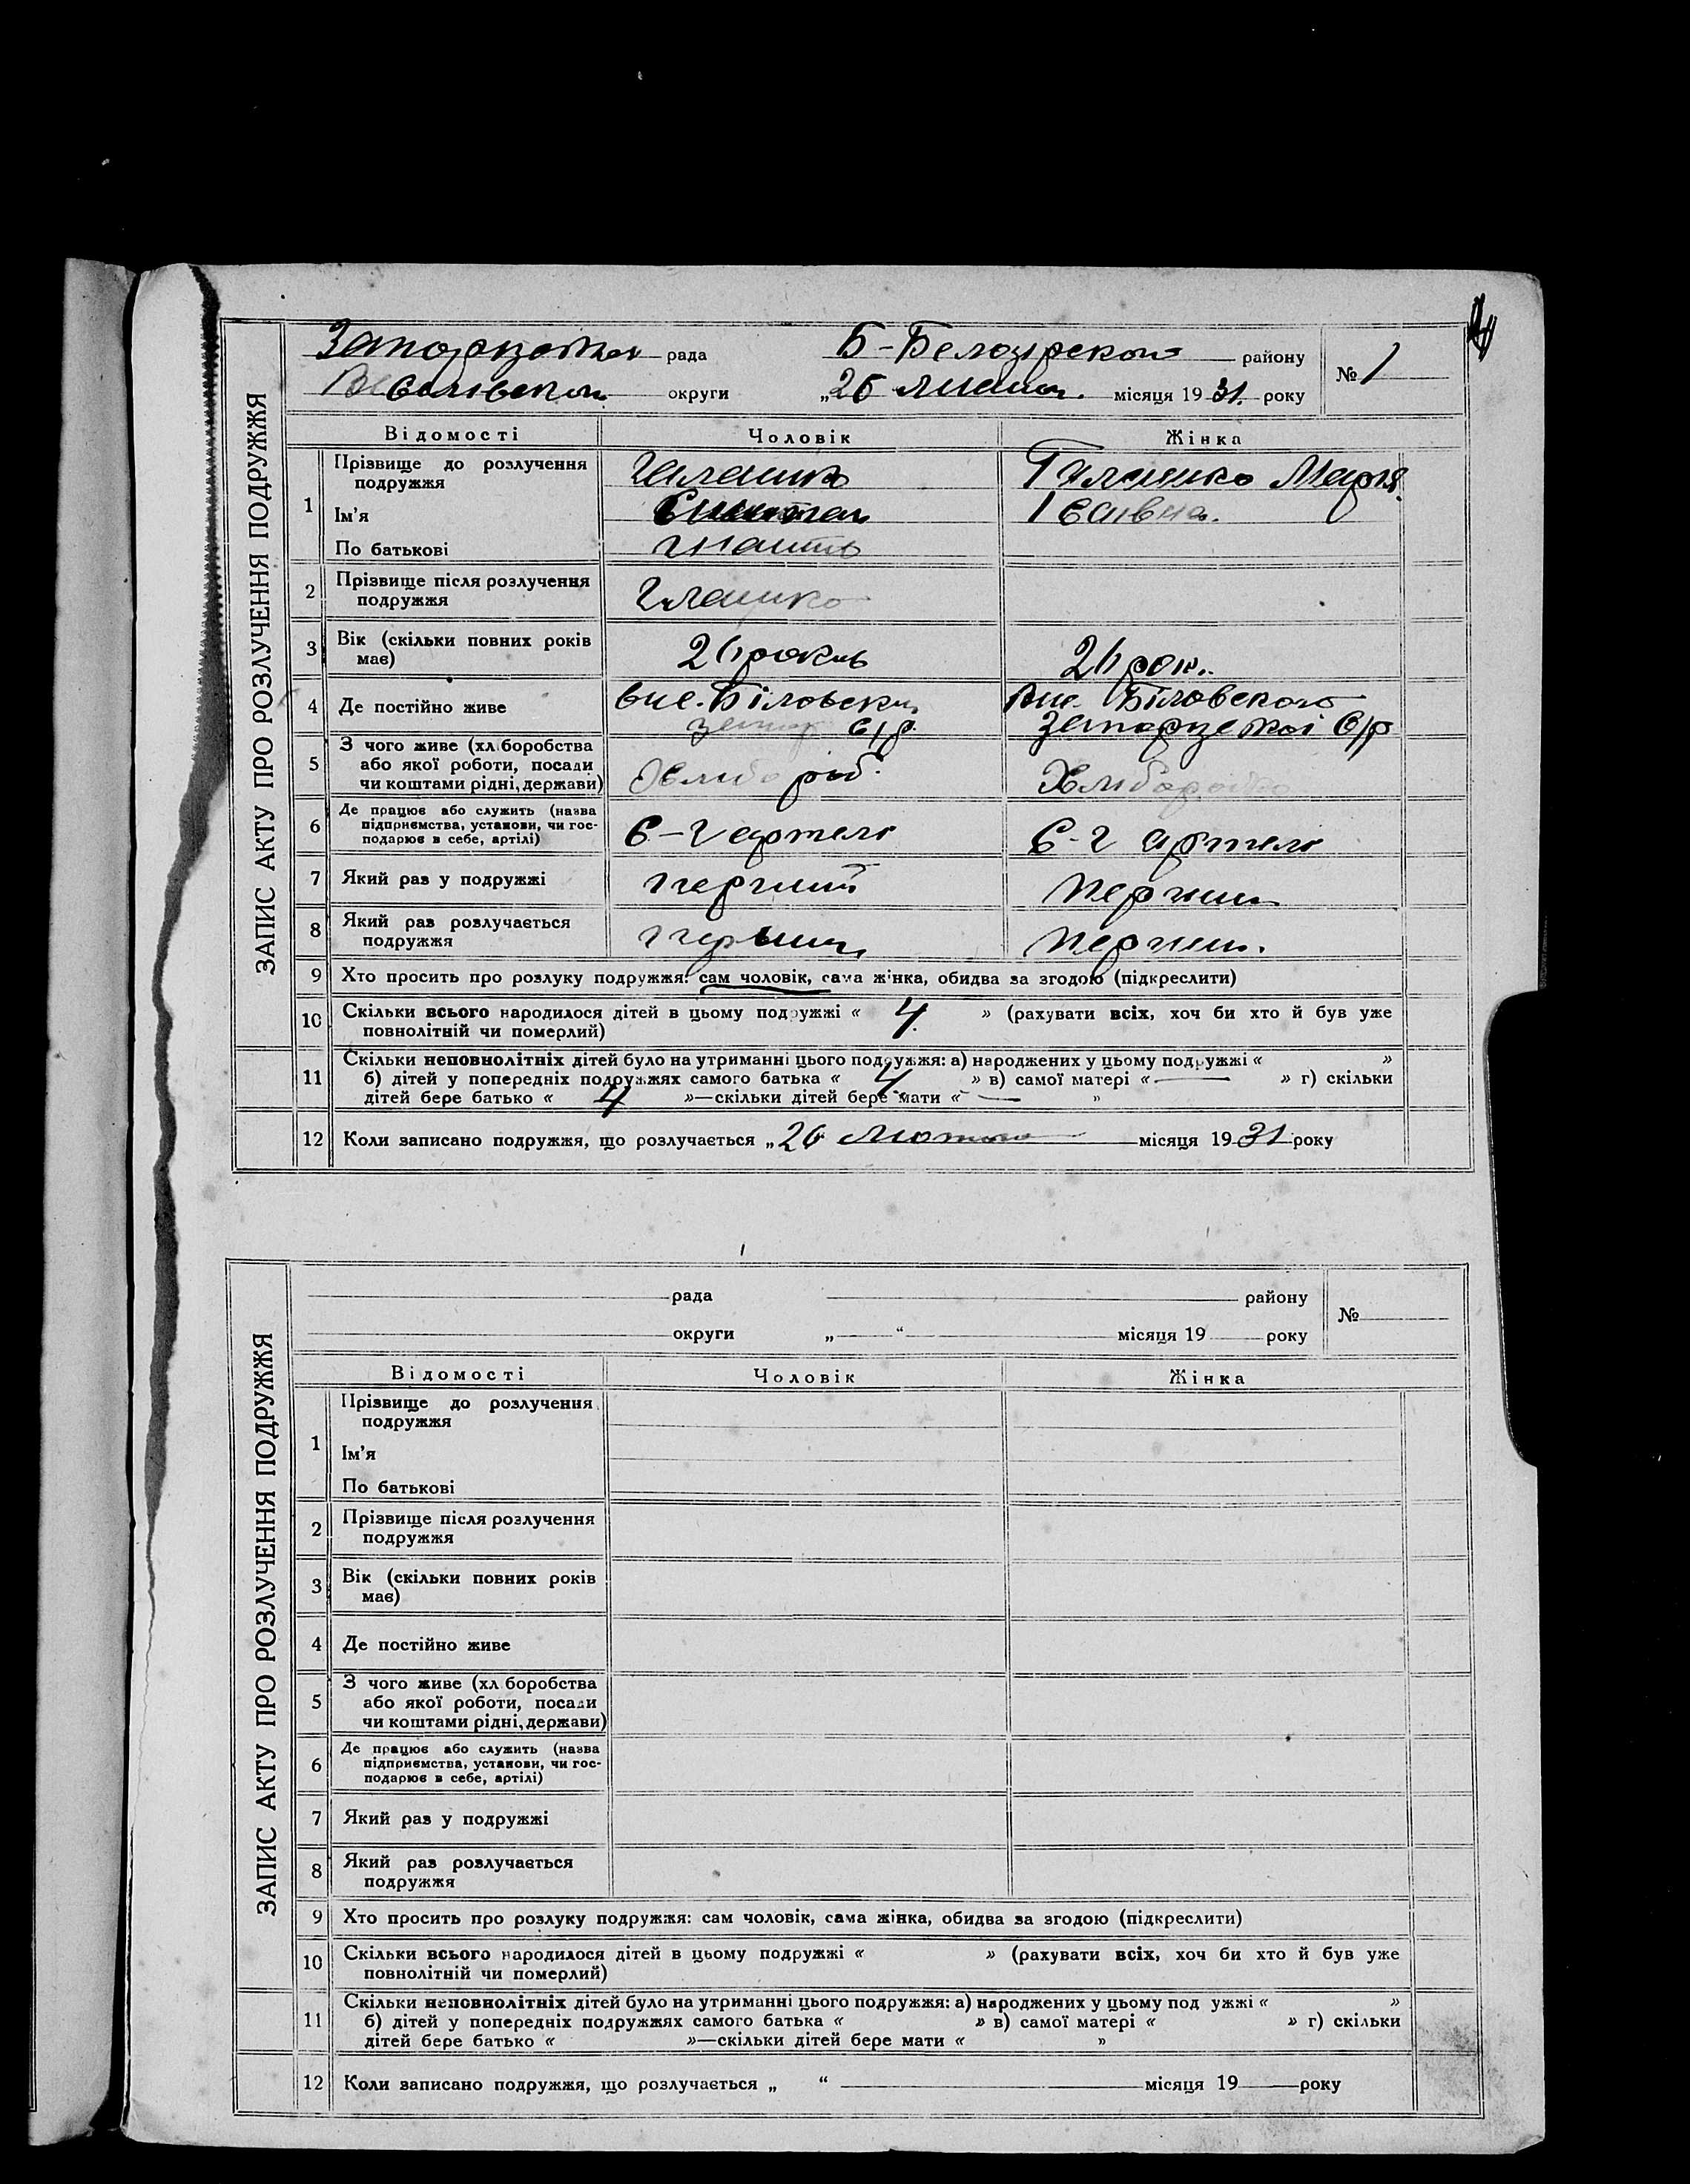 ЗАПИС АКТУ ПРО РОЗЛУЧЕННЯ ПОДРУЖЖЯ
рада Б-Белозірской району
округи „26 місяця 19 31. року
№ 1
Відомості Чоловік Жінка
1 Прізвище до розлучення подружжя Марія
Ім'я
По батькові
2 Прізвище після розлучення
подружжя
3 Вік (скільки повних років
має)
4 Де постійно живе
с/р
5 З чого живе (хліборобства
або якої роботи, посади
чи коштами рідні, держави)
6 Де працює або служить (назва
підприємства, установи, чи гос-
подарює в себе, артілі)
С-Г артелі С-Г артелі
7 Який раз у подружжі перший перший
8 Який раз розлучається
подружжя перший перший.
9 Хто просить про розлуку подружжя: сам чоловік, сама жінка, обидва за згодою (підкреслити)
10 Скільки всього народилося дітей в цьому подружжі « 4. » (рахувати всіх, хоч би хто й був уже
повнолітній чи померлий)
11 Скільки неповнолітніх дітей було на утриманні цього подружжя: а) народжених у цьому подружжі « »
б) дітей у попередніх подружжях самого батька « 4 » в) самої матері «—» г) скільки
дітей бере батько « 4 »—скільки дітей бере мати « — »
12 Коли записано подружжя, що розлучається „26 Лютого місяця 19 31 року
ЗАПИС АКТУ ПРО РОЗЛУЧЕННЯ ПОДРУЖЖЯ
рада району
округи „ “ місяця 19 року
№
Відомості Чоловік Жінка
1 Прізвище до розлучення
подружжя
Ім'я
По батькові
2 Прізвище після розлучення
подружжя
3 Вік (скільки повних років
має)
4 Де постійно живе
5 З чого живе (хліборобства
або якої роботи, посади
чи коштами рідні, держави)
6 Де працює або служить (назва
підприємства, установи, чи гос-
подарює в себе, артілі)
7 Який раз у подружжі
8 Який раз розлучається
подружжя
9 Хто просить про розлуку подружжя: сам чоловік, сама жінка, обидва за згодою (підкреслити)
10 Скільки всього народилося дітей в цьому подружжі « » (рахувати всіх, хоч би хто й був уже
повнолітній чи померлий)
11 Скільки неповнолітніх дітей було на утриманні цього подружжя: а) народжених у цьому подружжі « »
б) дітей у попередніх подружжях самого батька « » в) самої матері « » г) скільки
дітей бере батько « »—скільки дітей бере мати « »
12 Коли записано подружжя, що розлучається „ “ місяця 19 року